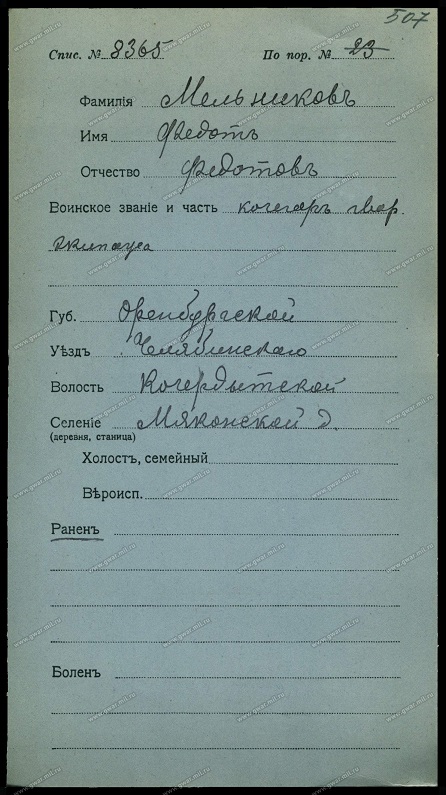 507
Спис. № 8365 По пор. № 23
Фамилія Мельниковъ
Имя Федотъ
Отчество Федотовъ
Воинское званіе и часть кочегаръ гвар.
экипажа
Губ. Оренбургской
Уѣздъ Челябинскаго
Волость Кочердытской
Селеніе Мяконской д.
(деревня, станица)
Холостъ, семейный
Вѣроисп.
Раненъ
Боленъ
www.gwar.mil.ru